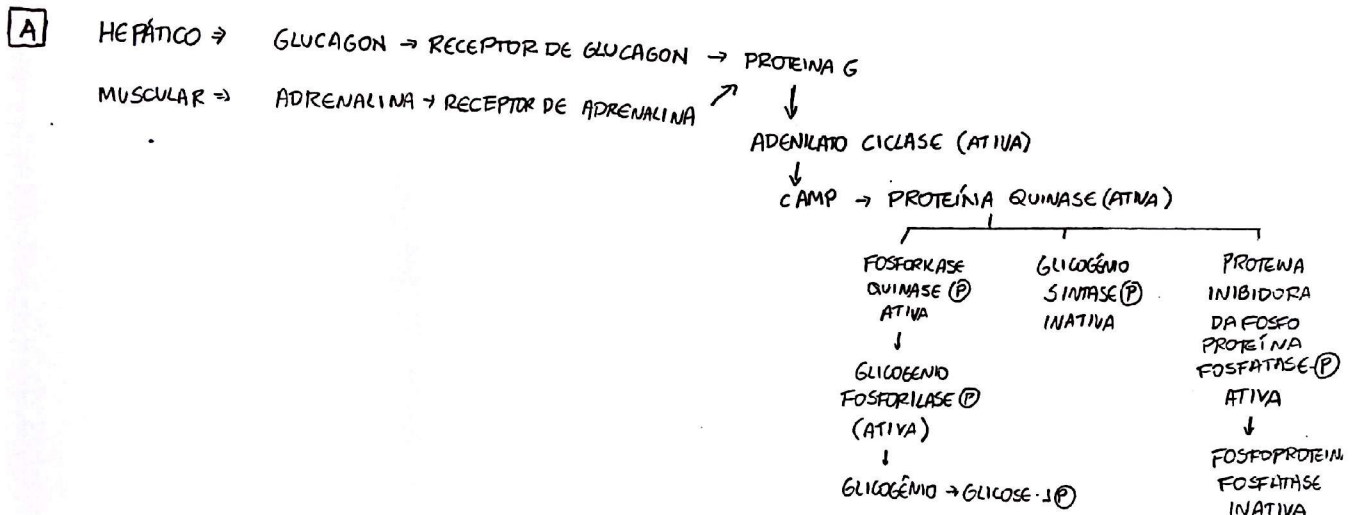 A
HEPÁTICO ⇒ GLUCAGON → RECEPTOR DE GLUCAGON → PROTEINA G
MUSCULAR ⇒ ADRENALINA → RECEPTOR DE ADRENALINA ↗
↓
ADENILATO CICLASE (ATIVA)
↓
CAMP → PROTEÍNA QUINASE (ATIVA)
FOSFORILASE
QUINASE Ⓟ
ATIVA
↓
GLICOGENIO
FOSFORILASE Ⓟ
(ATIVA)
↓
GLICOGÊNIO → GLICOSE-1Ⓟ
GLICOGÊNIO
SINTASE Ⓟ
INATIVA
PROTEINA
INIBIDORA
DA FOSFO
PROTEÍNA
FOSFATASE-Ⓟ
ATIVA
↓
FOSFOPROTEIN
FOSFATASE
INATIVA